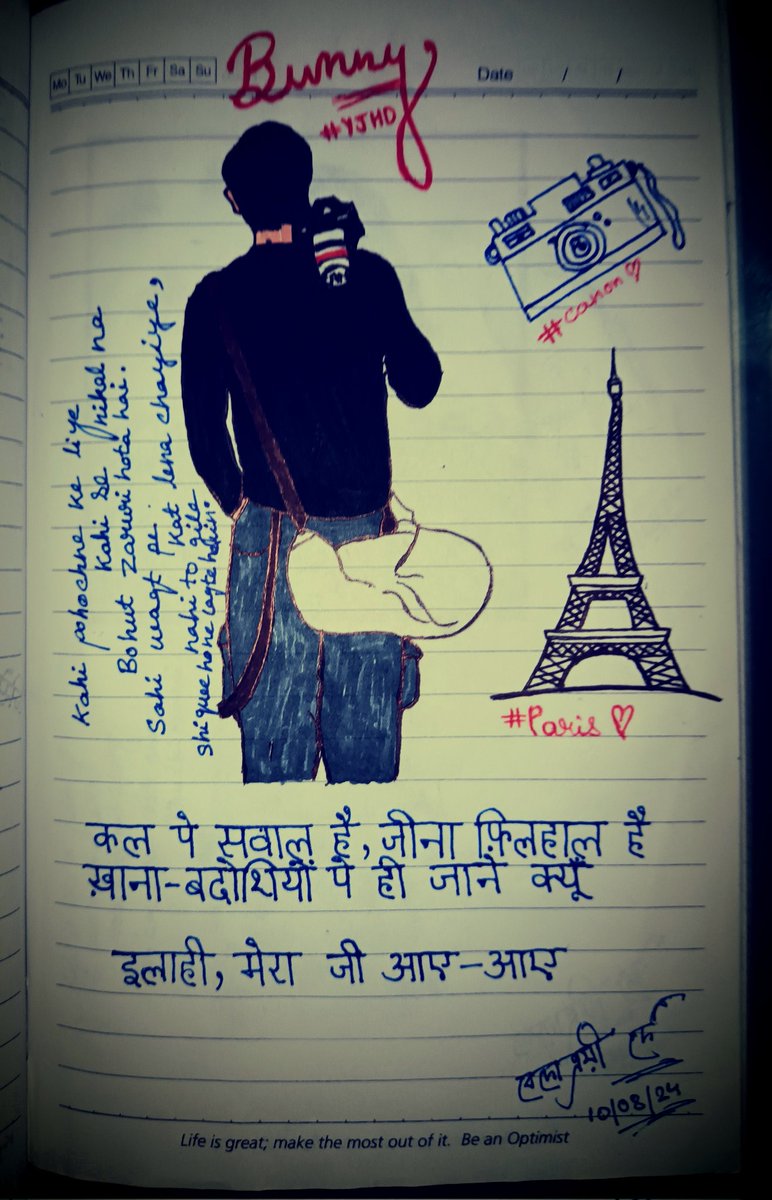 Mo Tu We Th Fr Sa Su
Bunny
Date / /
#YJHD
#canon
Kahi pohochne ke liye
Kahi se nikal na
Bohut zaruri hota hai.
Sahi waqt pe
Kat lena chayiye,
nahi to gile
shiquee hone lagte hain.
#Paris
कल पे सवाल है, जीना फ़िलहाल है
ख़ाना-बदोशियों पे ही जाने क्यूँ
इलाही, मेरा जी आए-आए
10/08/24
Life is great; make the most out of it. Be an Optimist